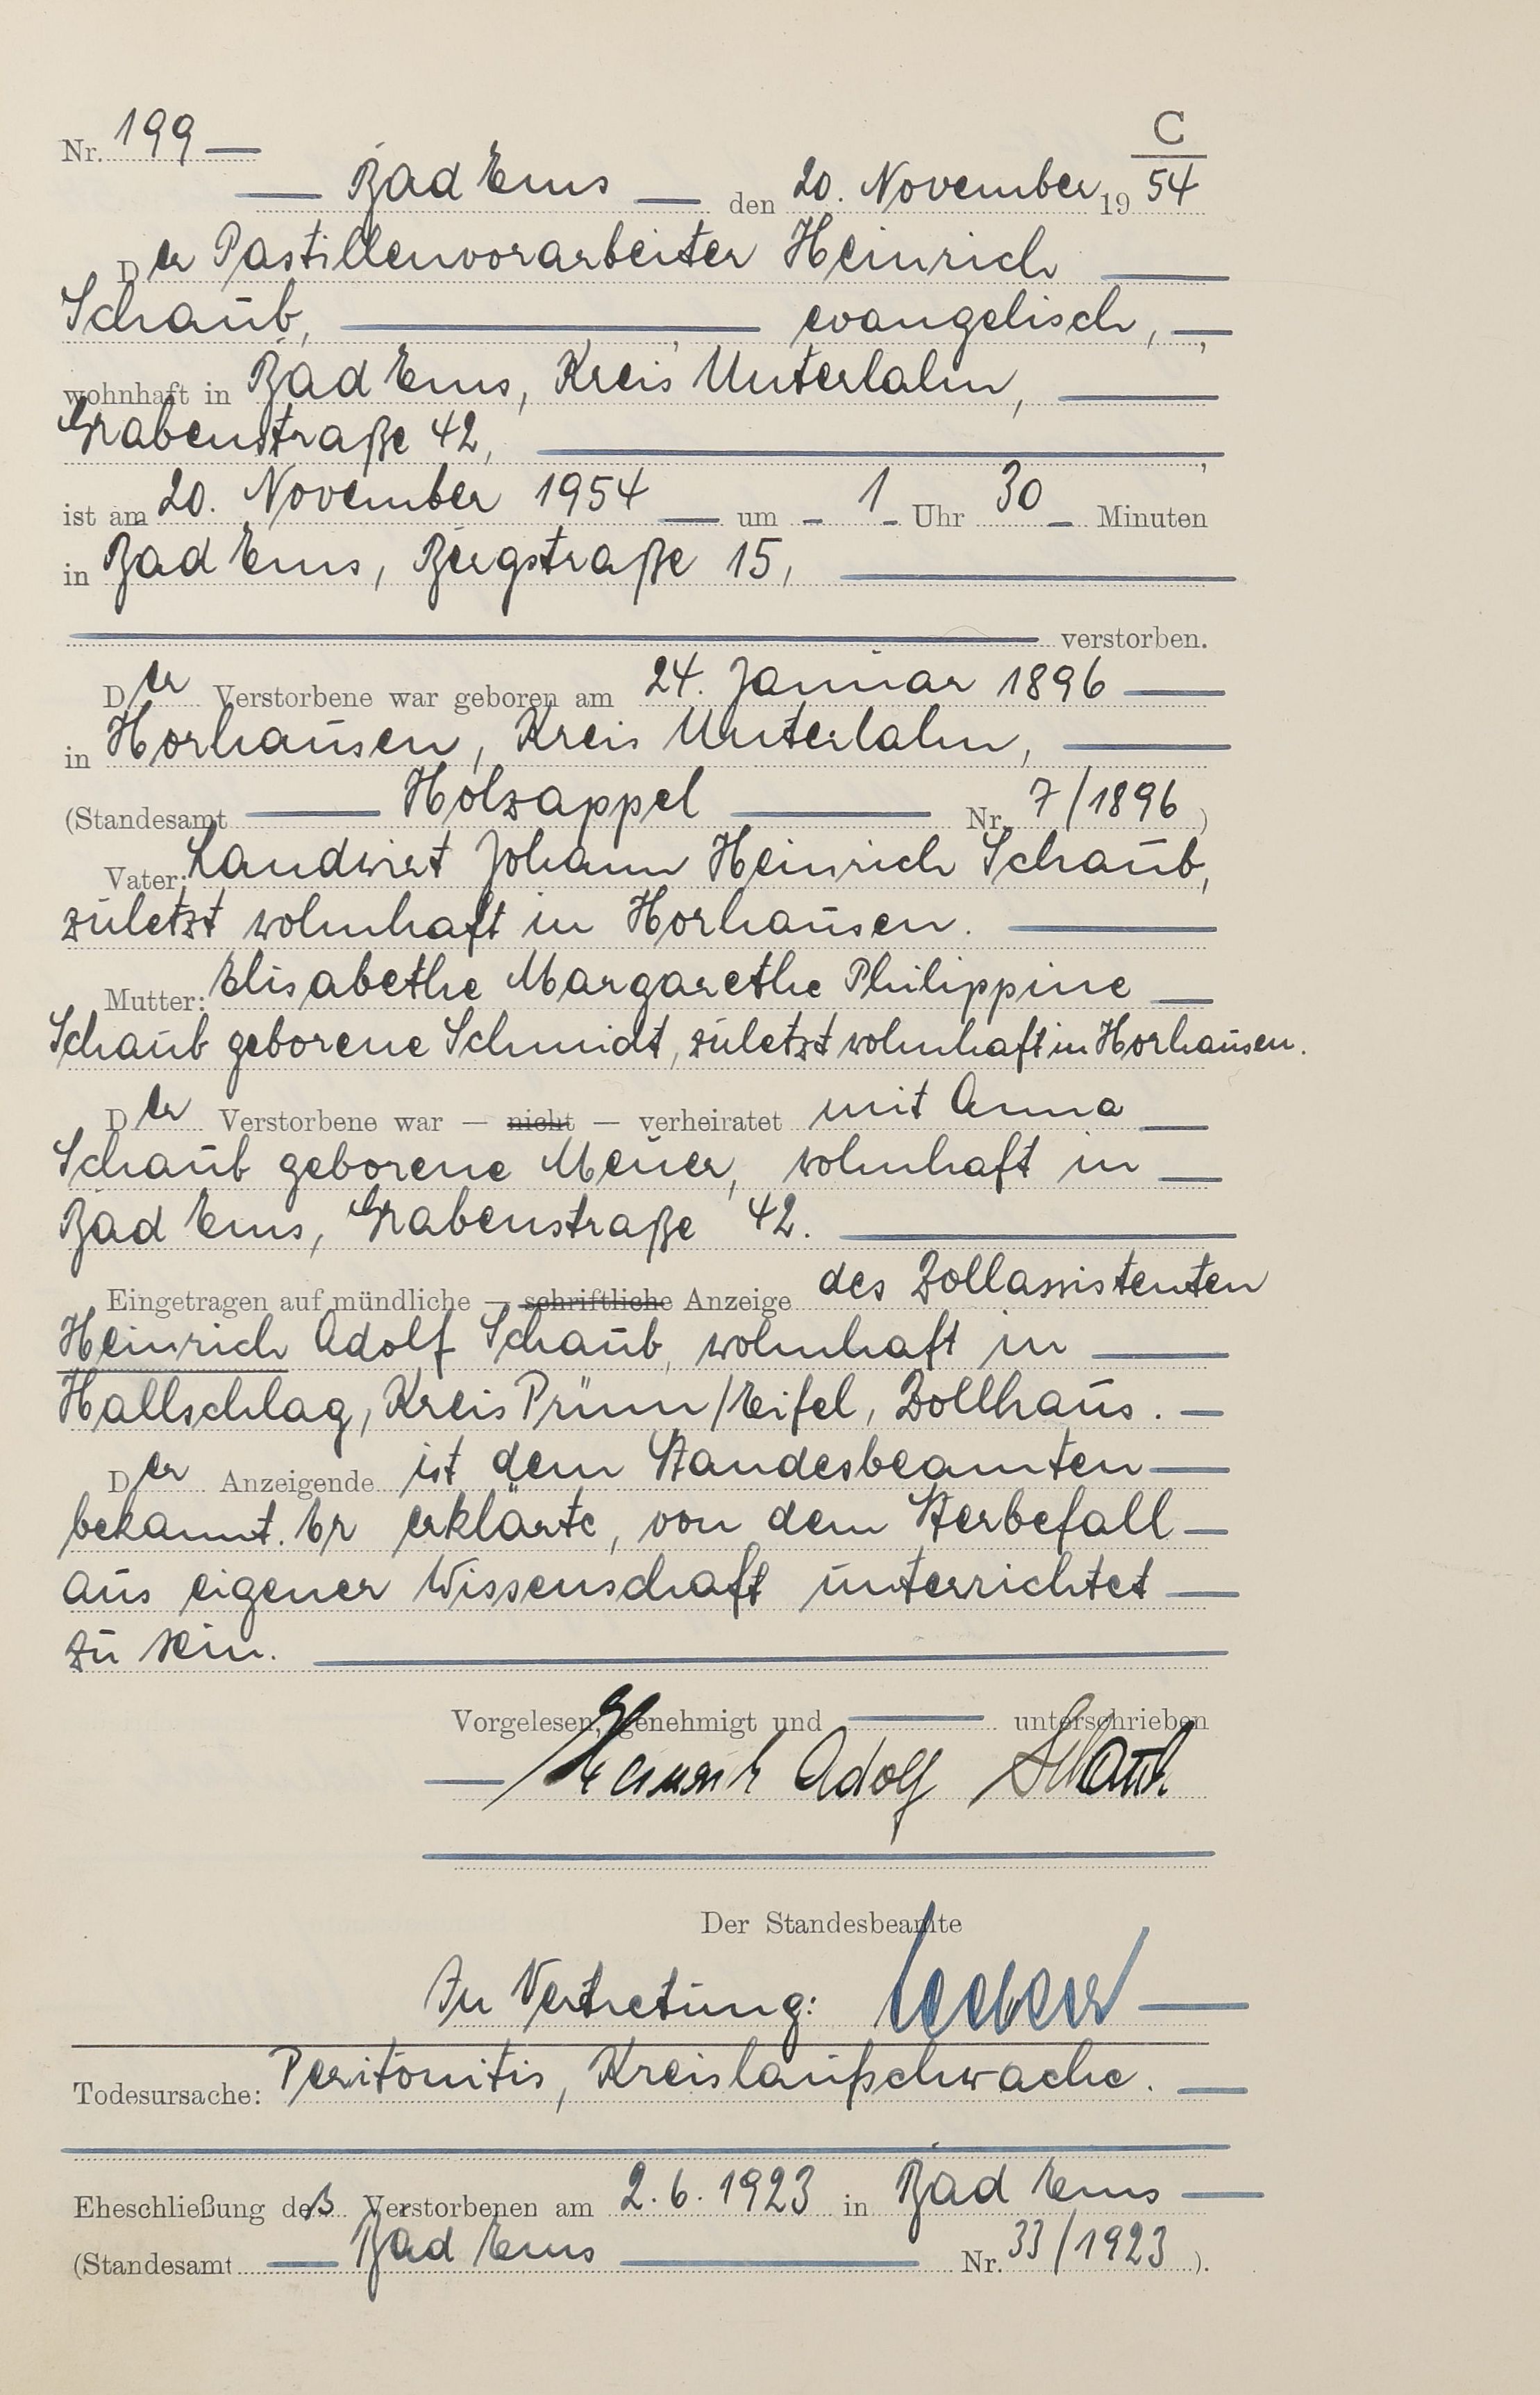 C
Nr. 199
Bad Ems den 20. November 1954
Der Pastillenvorarbeiter Heinrich
Schaub, evangelisch,
wohnhaft in Bad Ems, Kreis Unterlahn,
Grabenstraße 42,
ist am 20. November 1954 um 1 Uhr 30 Minuten
in Bad Ems, Bergstraße 15,
verstorben.
Der Verstorbene war geboren am 24. Januar 1896
in Horhausen, Kreis Unterlahn,
(Standesamt Holzappel Nr. 7/1896)
Vater: Landwirt Johann Heinrich Schaub,
zuletzt wohnhaft in Horhausen.
Mutter: Elisabethe Margarethe Philippine
Schaub geborene Schmidt, zuletzt wohnhaft in Horhausen.
Der Verstorbene war — nicht — verheiratet mit Anna
Schaub geborene Meuer, wohnhaft in
Bad Ems, Grabenstraße 42.
Eingetragen auf mündliche — schriftliche Anzeige des Zollassistenten
Heinrich Adolf Schaub, wohnhaft in
Hallschlag, Kreis Prüm/Eifel, Zollhaus.
Der Anzeigende ist dem Standesbeamten
bekannt. Er erklärte, von dem Sterbefall
aus eigener Wissenschaft unterrichtet
zu sein.
Vorgelesen, genehmigt und unterschrieben
Heinrich Adolf Schaub
Der Standesbeamte
In Vertretung:
Todesursache: Peritonitis, Kreislaufschwäche.
Eheschließung des Verstorbenen am 2.6.1923 in Bad Ems
(Standesamt Bad Ems Nr. 33/1923).